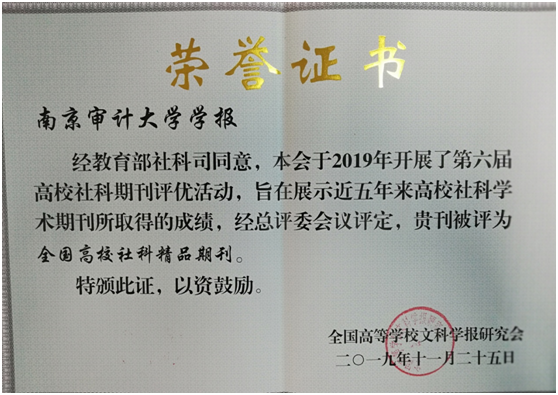 荣誉证书
南京审计大学学报
经教育部社科司同意，本会于2019年开展了第六届
高校社科期刊评优活动，旨在展示近五年来高校社科学
术期刊所取得的成绩，经总评委会议评定，贵刊被评为
全国高校社科精品期刊。
特颁此证，以资鼓励。
全国高等学校文科学报研究会
二〇一九年十一月二十五日